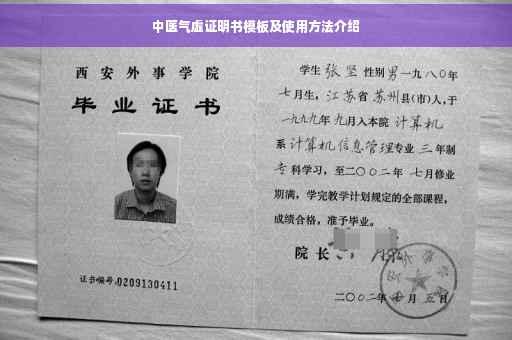 中医气虚证明书模板及使用方法介绍
西安外事学院
毕业证书
证书编号:0209130411
学生 张坚 性别 男 一九八〇年
七月生，江苏省 苏州县(市)人，于
一九九九年 九月入本院 计算机
系 计算机信息管理专业 三 年制
专 科学习，至二〇〇二年 七月修业
期满，学完教学计划规定的全部课程，
成绩合格，准予毕业。
院长
二〇〇二年 七 月 五 日